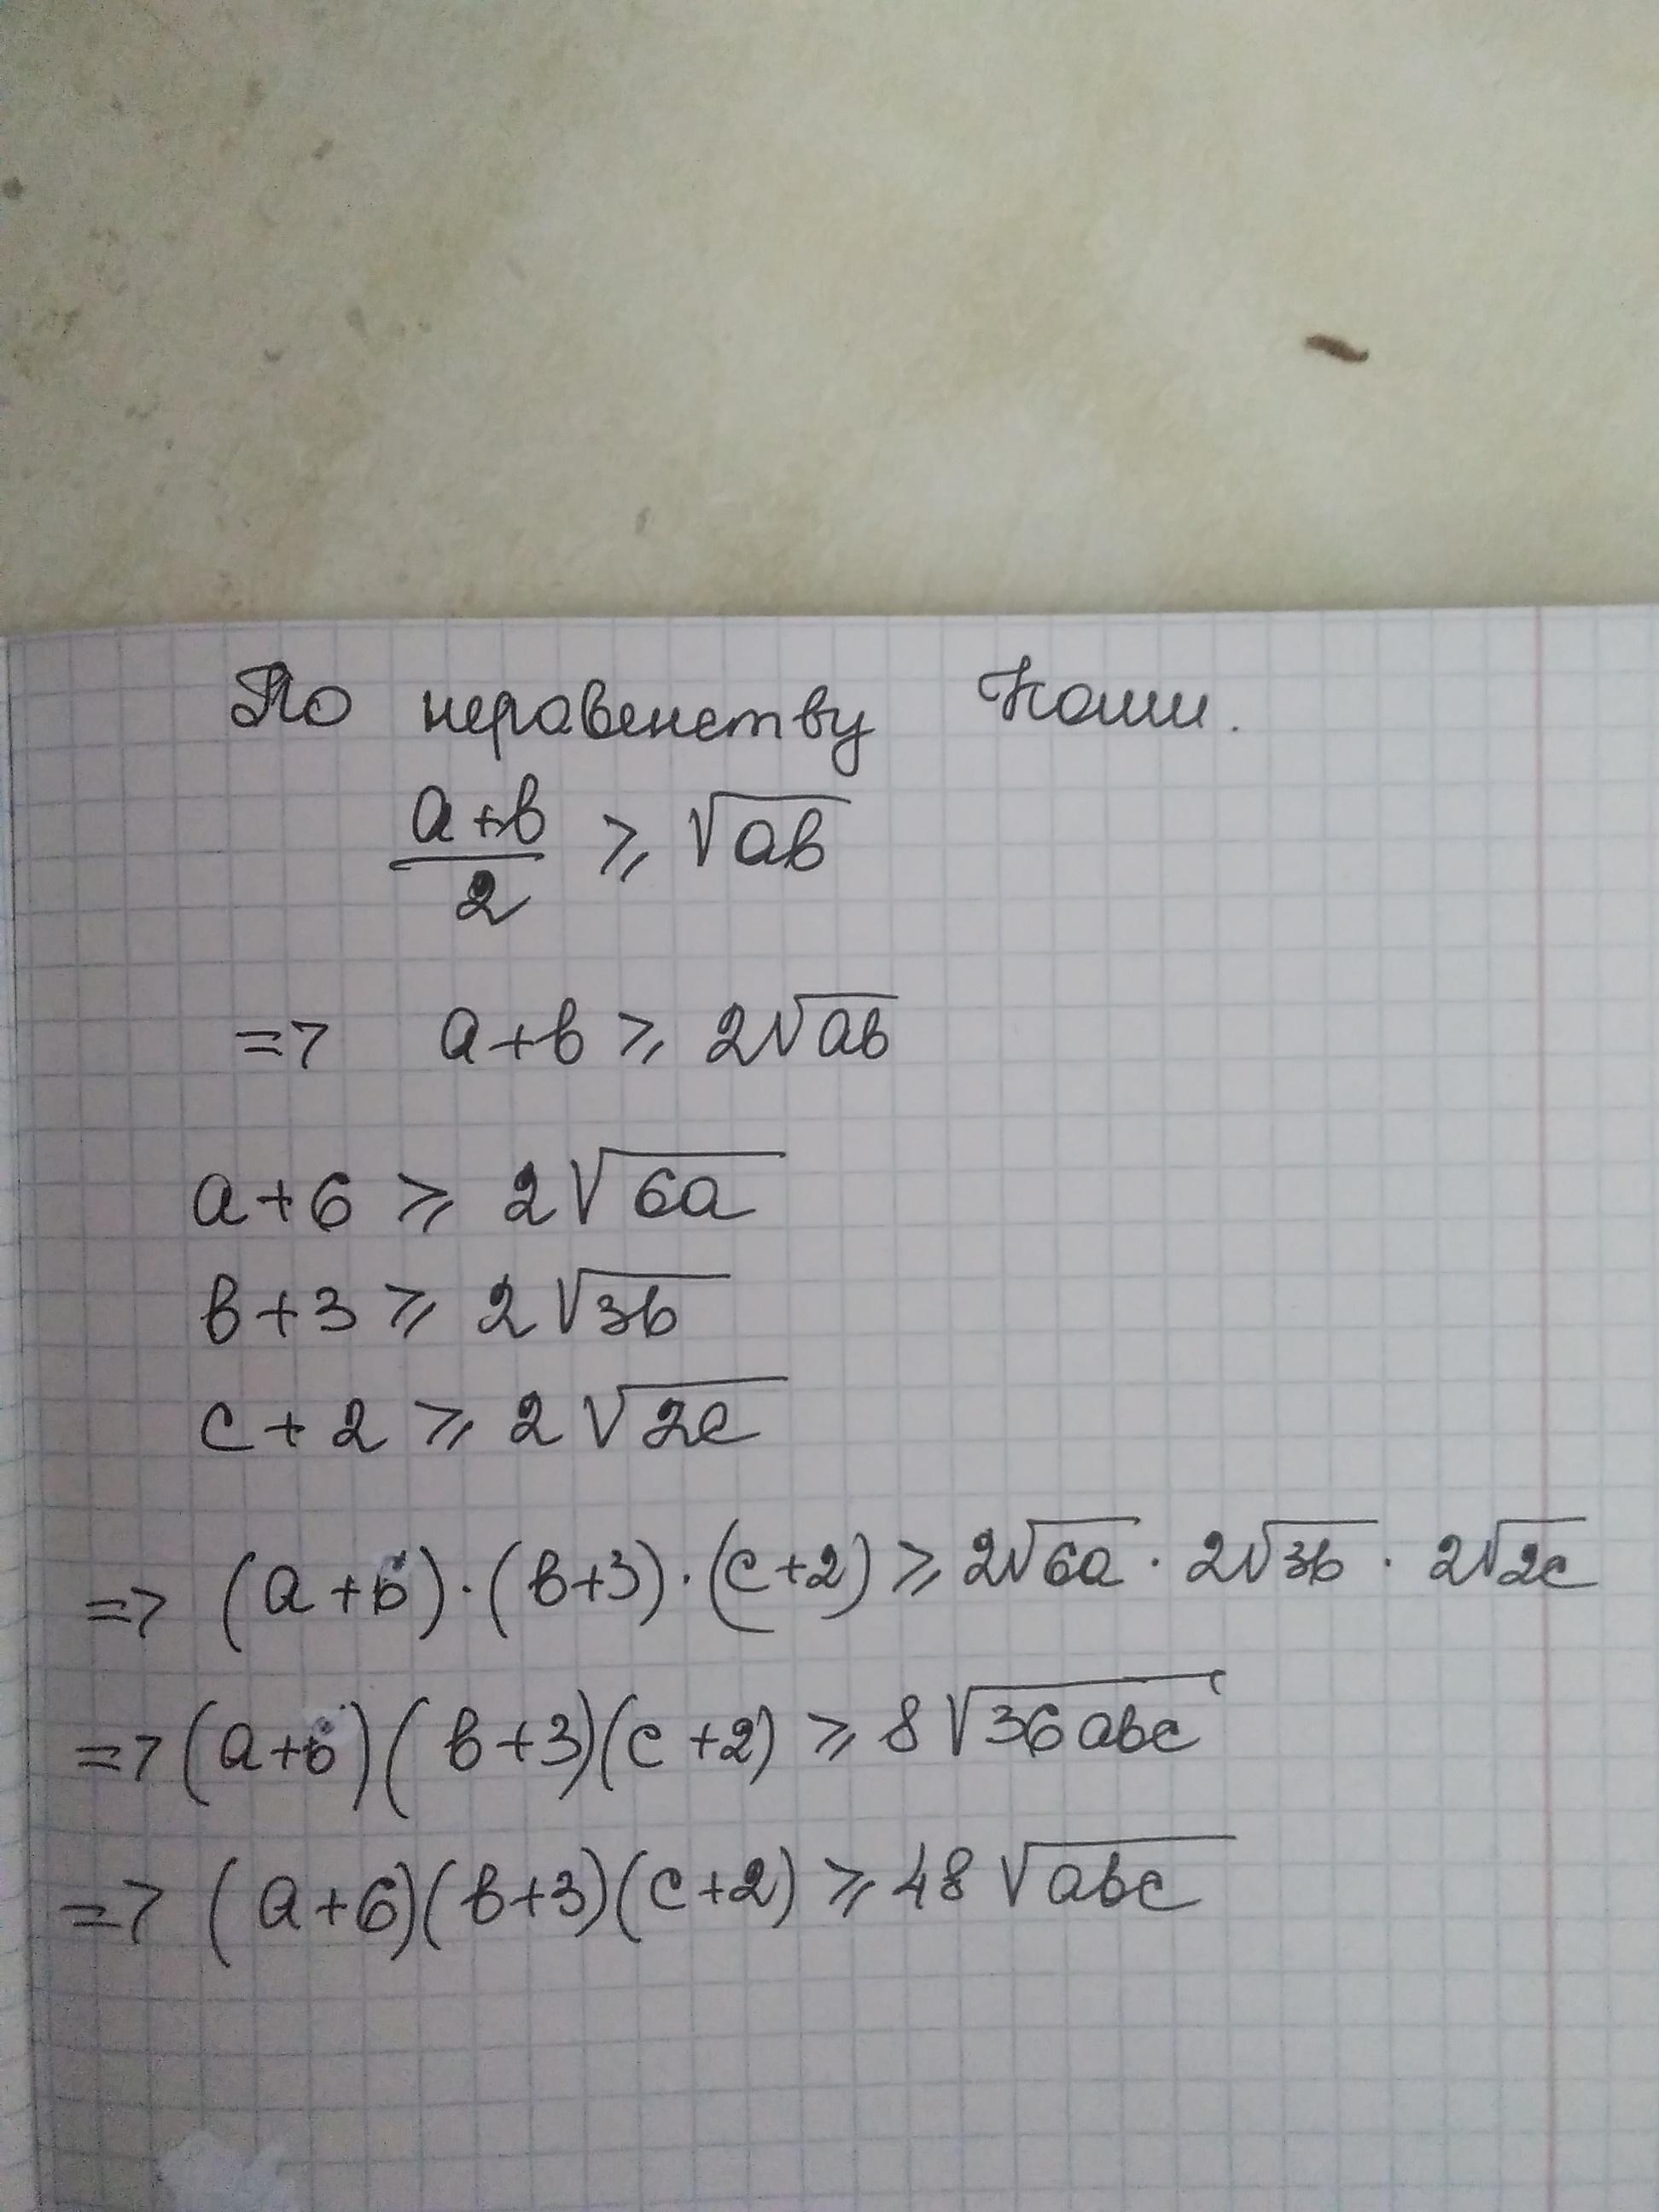 По неравенству Коши.
(a+b)/2 ⩾ √ab
=> a+b ⩾ 2√ab
a+6 ⩾ 2√6a
b+3 ⩾ 2√3b
c+2 ⩾ 2√2c
=> (a+6)·(b+3)·(c+2) ⩾ 2√6a · 2√3b · 2√2c
=> (a+6)(b+3)(c+2) ⩾ 8√36abc
=> (a+6)(b+3)(c+2) ⩾ 48√abc